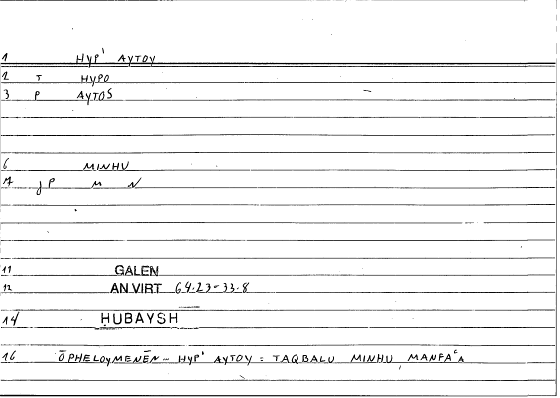 1 HYP' AYTOY
2 T HYPO
3 P AYTOS
6 MINHU
7 JP M N
11 GALEN
12 AN VIRT 64.23-33.8
14 ḤUBAYSH
16 ŌPHELOYMENĒN - HYP' AYTOY : TAQBALU MINHU MANFAʿA